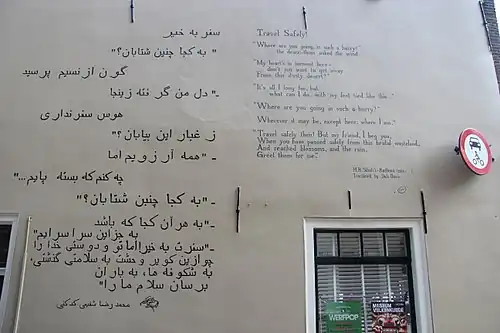 سفر به خیر
"به کجا چنین شتابان؟"
گون از نسیم پرسید
ـ"دل من گرفته زینجا
هوس سفر نداری
ز غبار این بیابان؟"
ـ"همه آرزویم اما
چه کنم که بسته پایم..."
ـ"به کجا چنین شتابان؟"
ـ"به هر آن کجا که باشد
به جز این سرا سرایم"
ـ"سفرت به خیر! اما تو و دوستی خدا را
چو از این کویر وحشت به سلامتی گذشتی،
به شکوفه ها، به باران
برسان سلام ما را"
محمد رضا شفیعی کدکنی
Travel Safely!
"Where are you going in such a hurry?"
the desert-thorn asked the wind.
"My heart's in torment here:
don't you want to get away
From this dusty desert?"
"It's all I long for, but
what can I do, with my feet tied like this..."
"Where are you going in such a hurry?"
"Wherever it may be, except here, where I am."
"Travel safely then! But my friend, I beg you,
When you have passed safely from this brutal wasteland,
And reached blossoms, and the rain,
Greet them for me."
WERFPOP
MUSEUM
VOLKENKUNDE